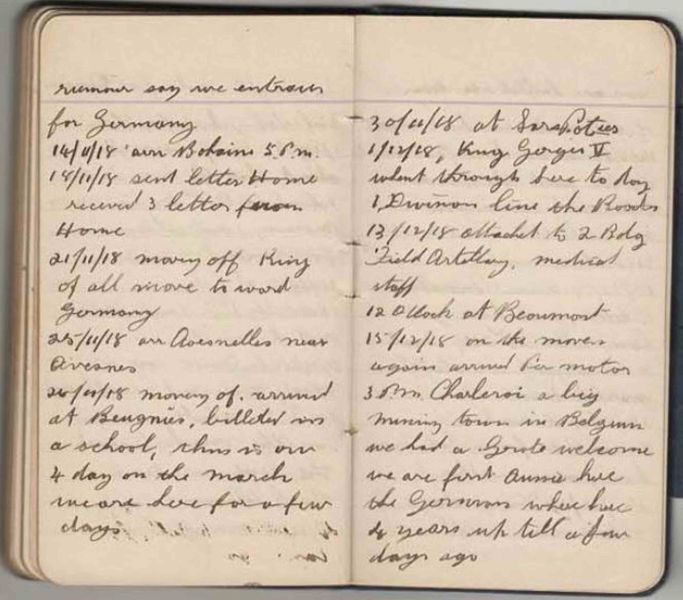 rumour say we entrain
for Germany
14/11/18 arr Bohains 5 P.m.
18/11/18 sent letter Home
receved 3 letter from
Home
21/11/18 moving off King
of all move to word
Germany
25/11/18 arr Avesnelles near
Avesnes
26/11/18 moveng of. arrived
at Beugnies, billeted in
a school, this is our
4 day on the march
we are here for a few
days
30/11/18 at Sars Poteries
1/12/18, King Gorges V
whent through here to day
1 Division line the Roads
13/12/18 attachet to 2 Bdg
Field Artillary, medical
staff
12 Oclock at Beaumont
15/12/18 on the move
again arrived Per motor
3 P.m. Charleroi a big
mining town in Belgium
we had a Grate welcome
we are first Aussie here
the Germans where here
4 years up till a few
days ago